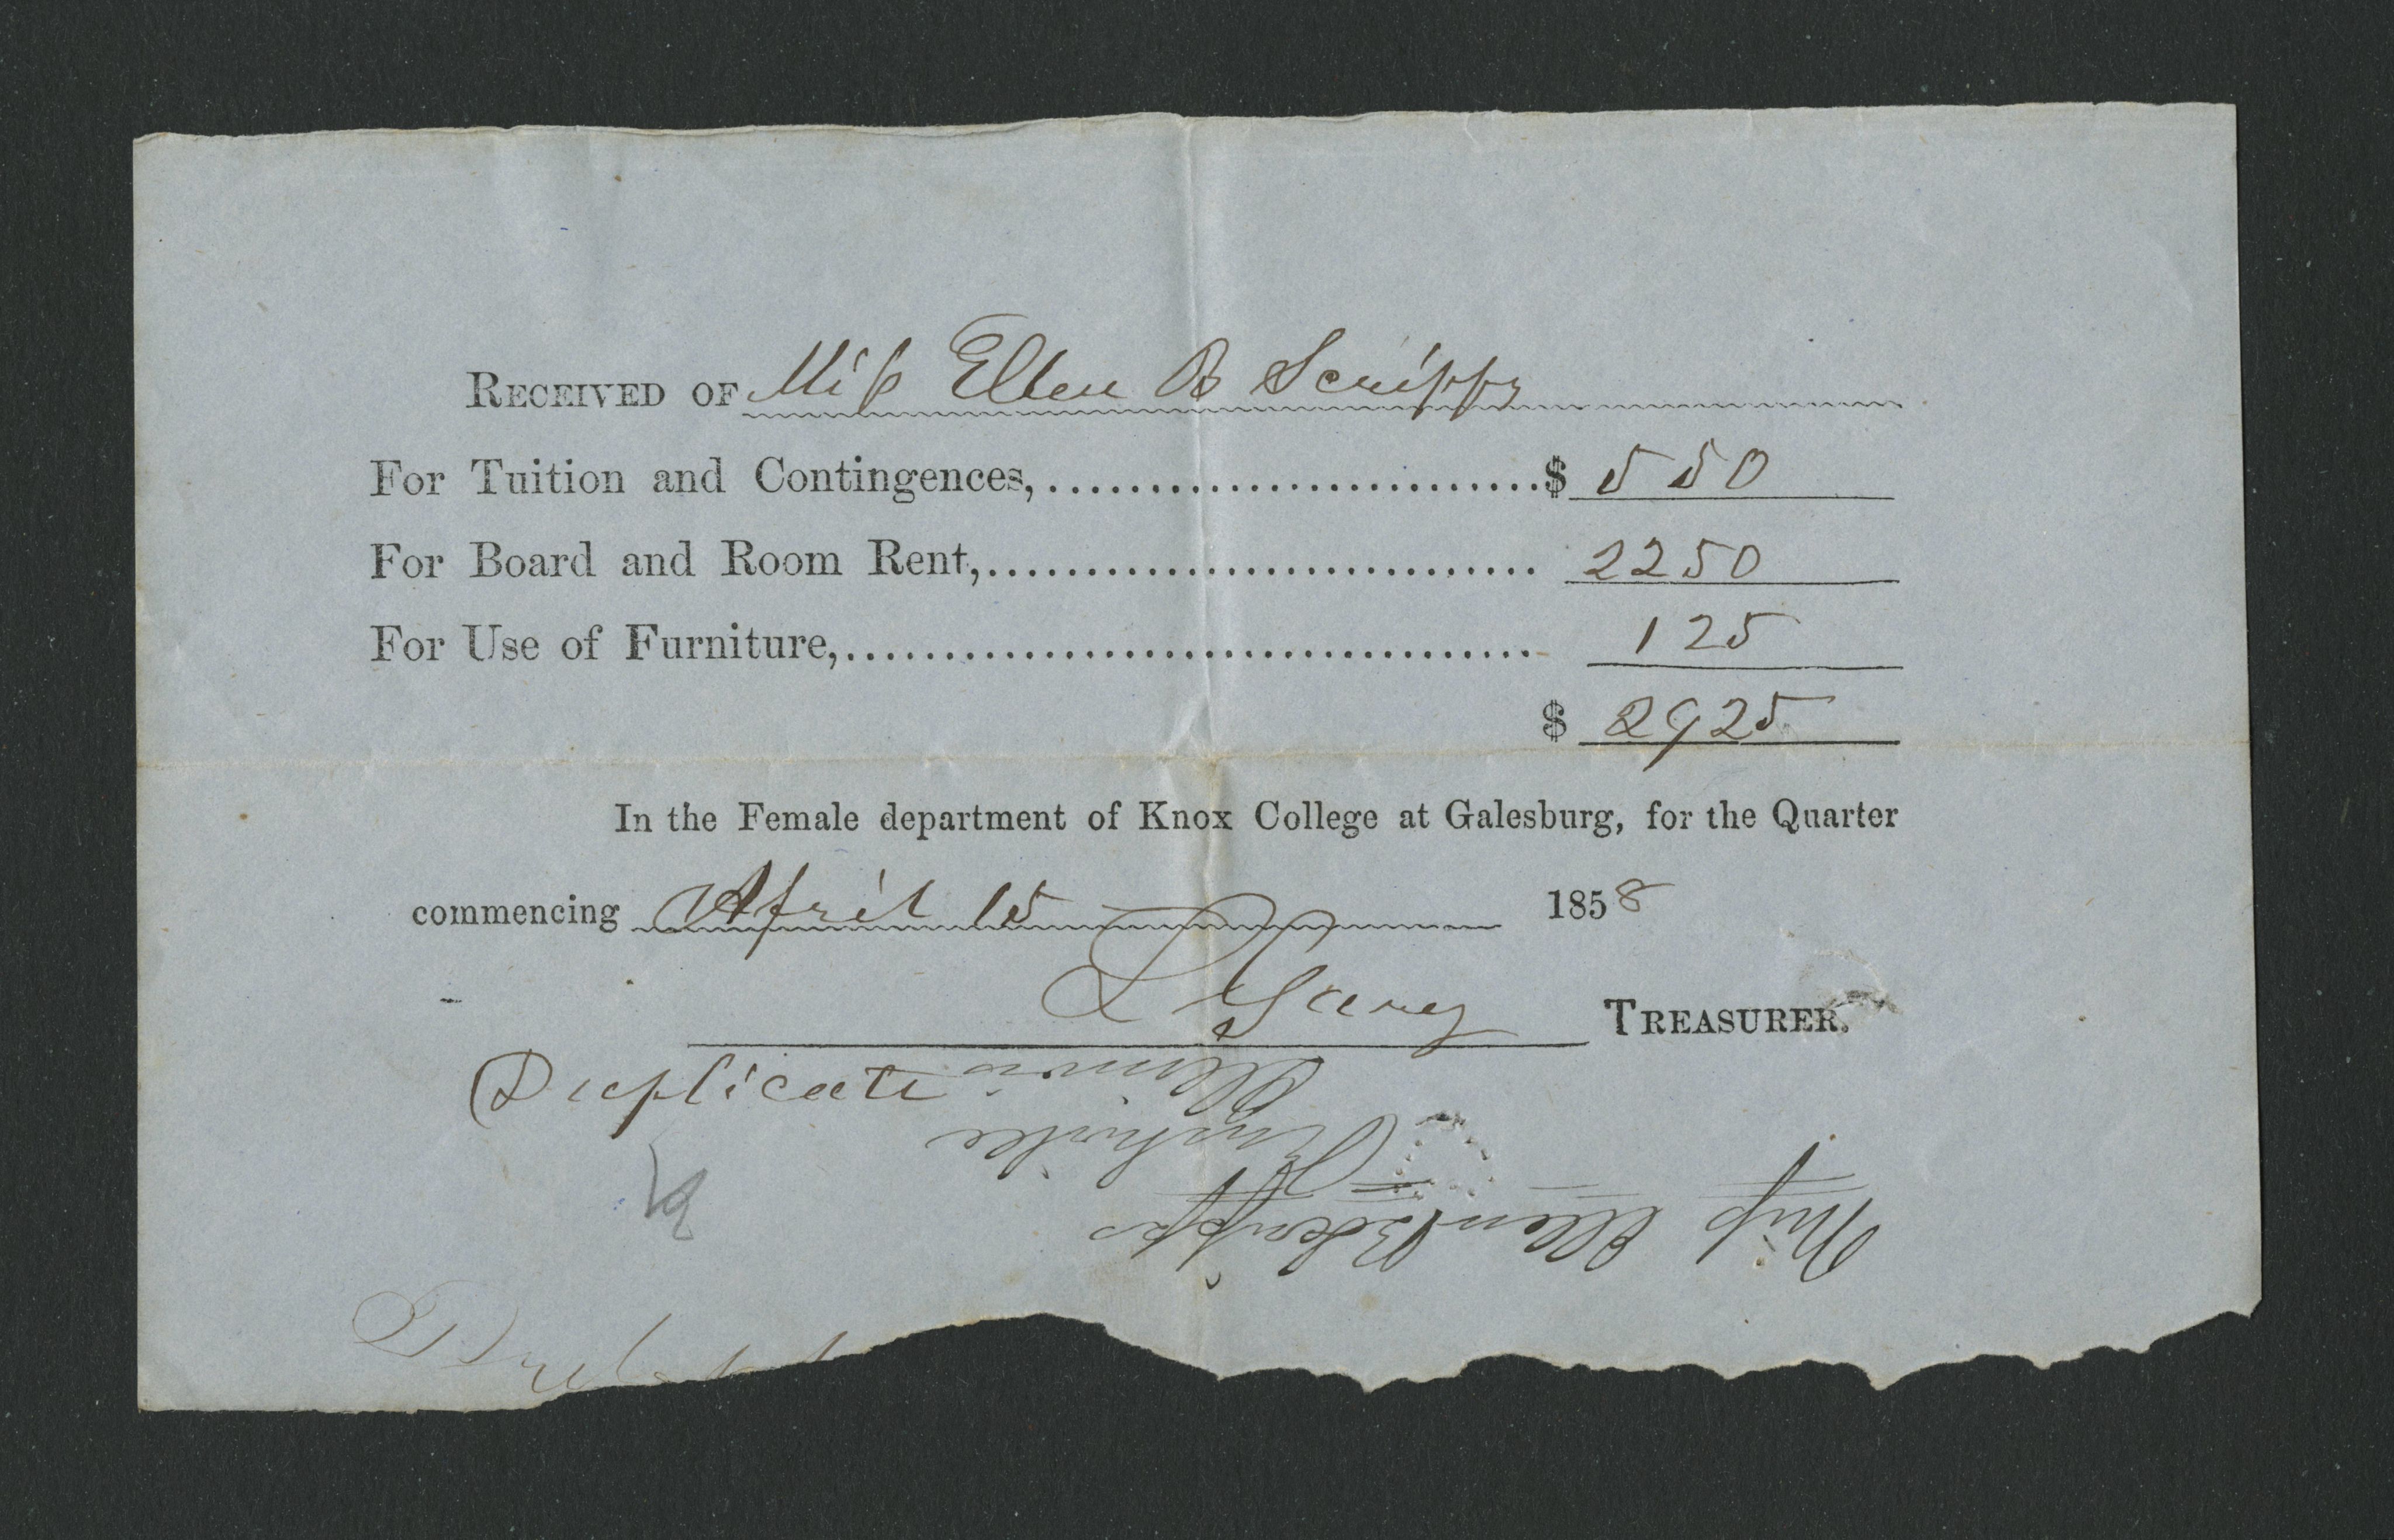 RECEIVED OF Miss Ellen B Scripps
For Tuition and Contingences,..............................$ 550
For Board and Room Rent,.............................. 2250
For Use of Furniture,.............................. 125
$ 2925
In the Female department of Knox College at Galesburg, for the Quarter
commencing April 15 1858
TREASURER.
Duplicate
Miss Ellen B Scripps
Rushville
Illinois